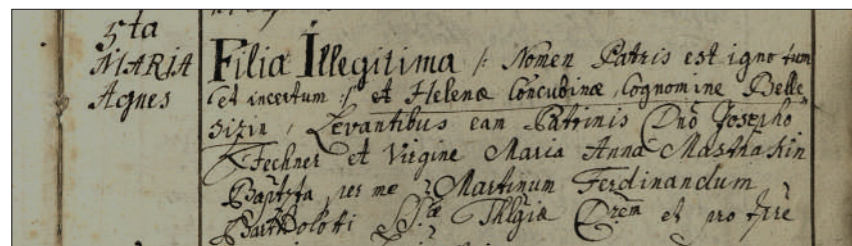 5ta
MARIA
Agnes
Filia Illegitima /: Nomen Patris est ignotum
et incertum :/ et Helenæ Concubinæ, Cognomine Belle,
sizin, Levantibus eam Patrinis Dno Josepho
Fechner et Virgine Maria Anna Masthakin
Baptzta, per me Martinum Ferdinandum
Bartholotti SS.tæ Thlgiæ Drem et pro tpre